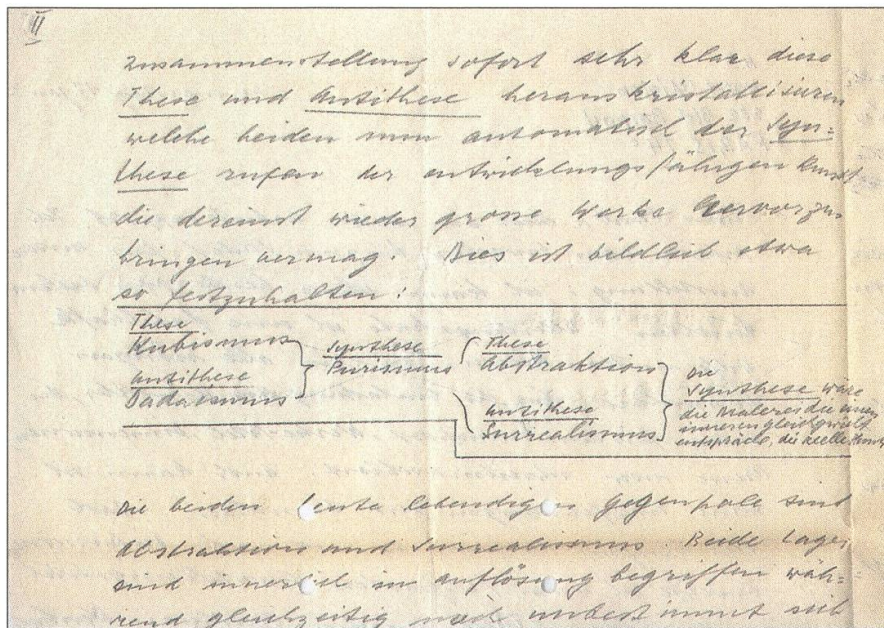 II
zusammenstellung sofort sehr klar diese
These und Antithese herauskristallisieren
welche beiden nun automatisch der Syn=
these rufen der entwicklungsfähigen Kunst
die dereinst wieder grosse Werke hervorzu
bringen vermag. Dies ist bildlich etwa
so festzuhalten:
These
Kubismus
Antithese
Dadaismus
Synthese
Purismus
These
Abstraktion
Antithese
Surrealismus
Die
Synthese wäre
die Malerei die
inneren gleichgewicht
entspräche, die
Die beiden heute lebendigen Gegenpole sind
Abstraktion und Surrealismus. Beide Lager
sind innerlich in auflösung begriffen wäh=
rend gleichzeitig noch unbestimmt sich